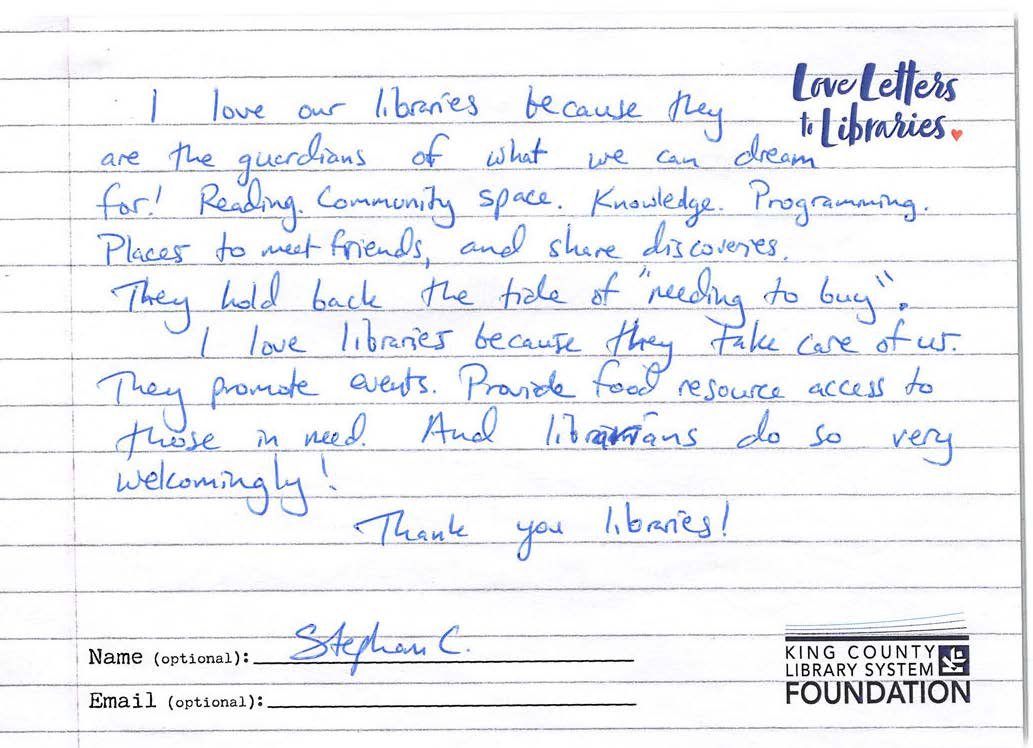 Love Letters
to Libraries
I love our libraries because they
are the guardians of what we can dream
for! Reading. Community space. Knowledge. Programming.
Places to meet friends, and share discoveries.
They hold back the tide of "needing to buy".
I love libraries because they take care of us.
They promote events. Provide food resource access to
those in need. And librarians do so very
welcomingly!
Thank you libraries!
Name (optional): Stephan C.
Email (optional):
KING COUNTY
LIBRARY SYSTEM
FOUNDATION